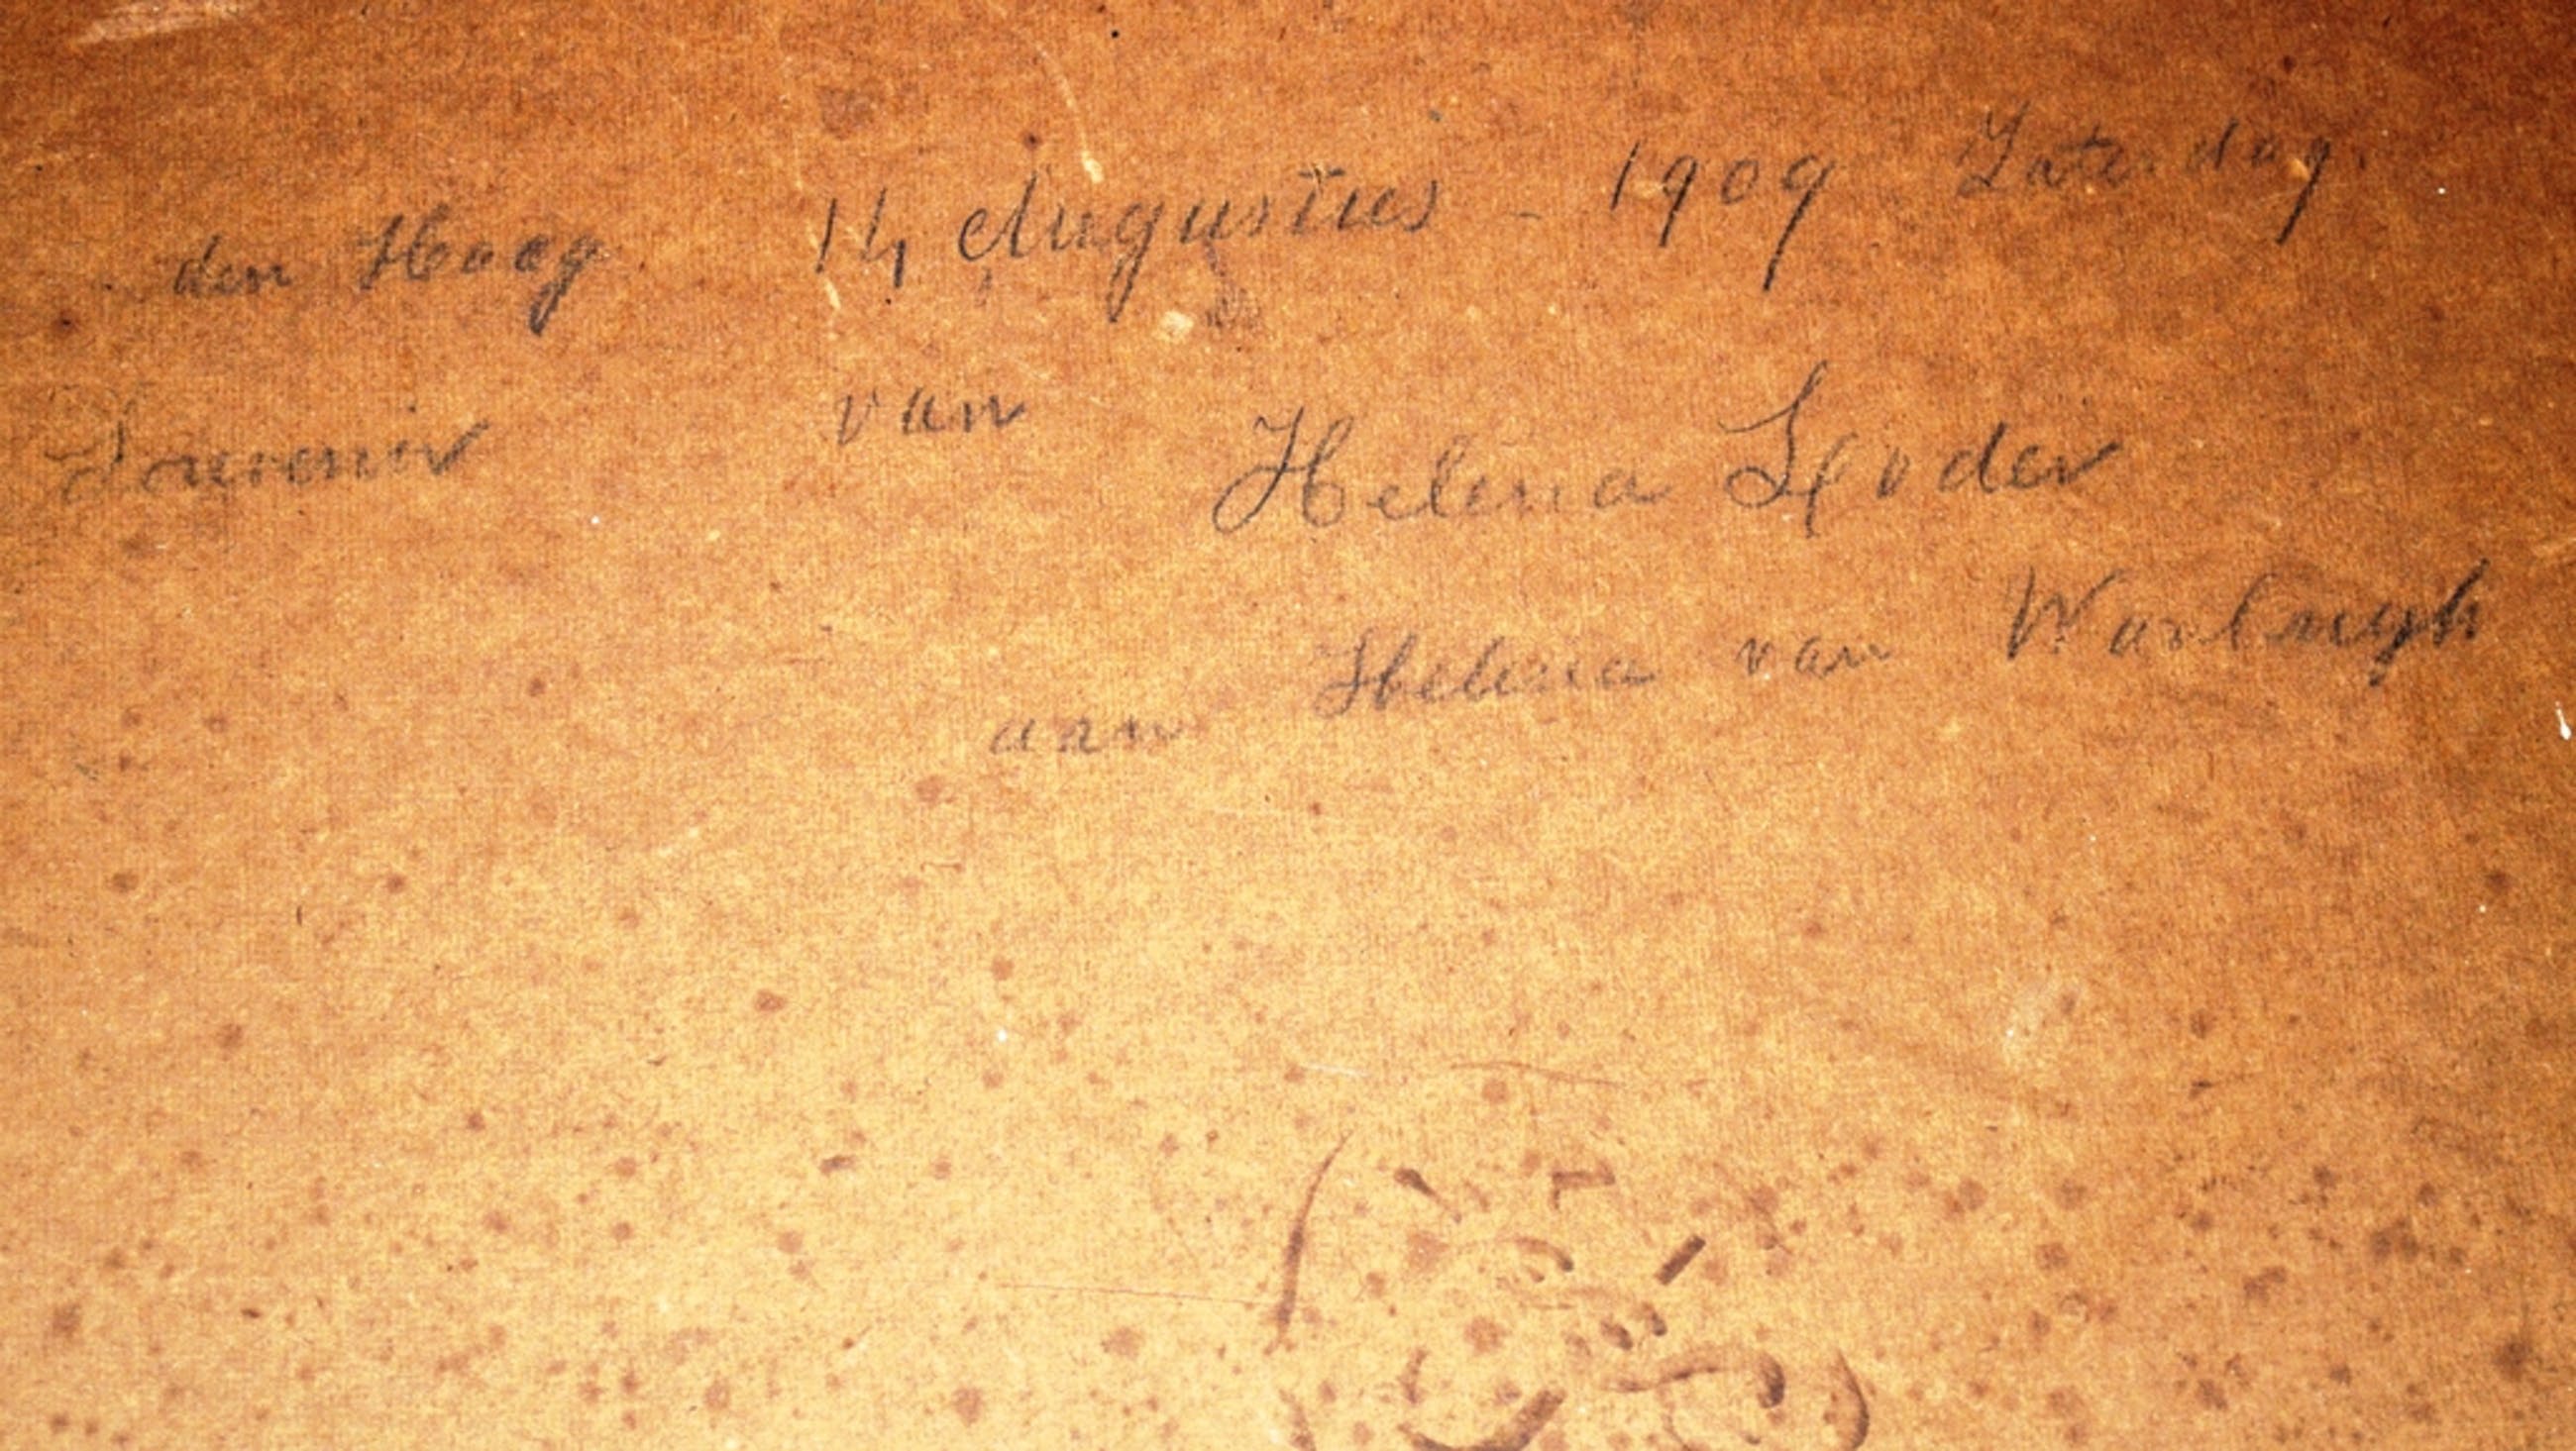 den Haag 14 Augustus - 1909 Zaterdag.
Souvenir van Helena
aan Helena van